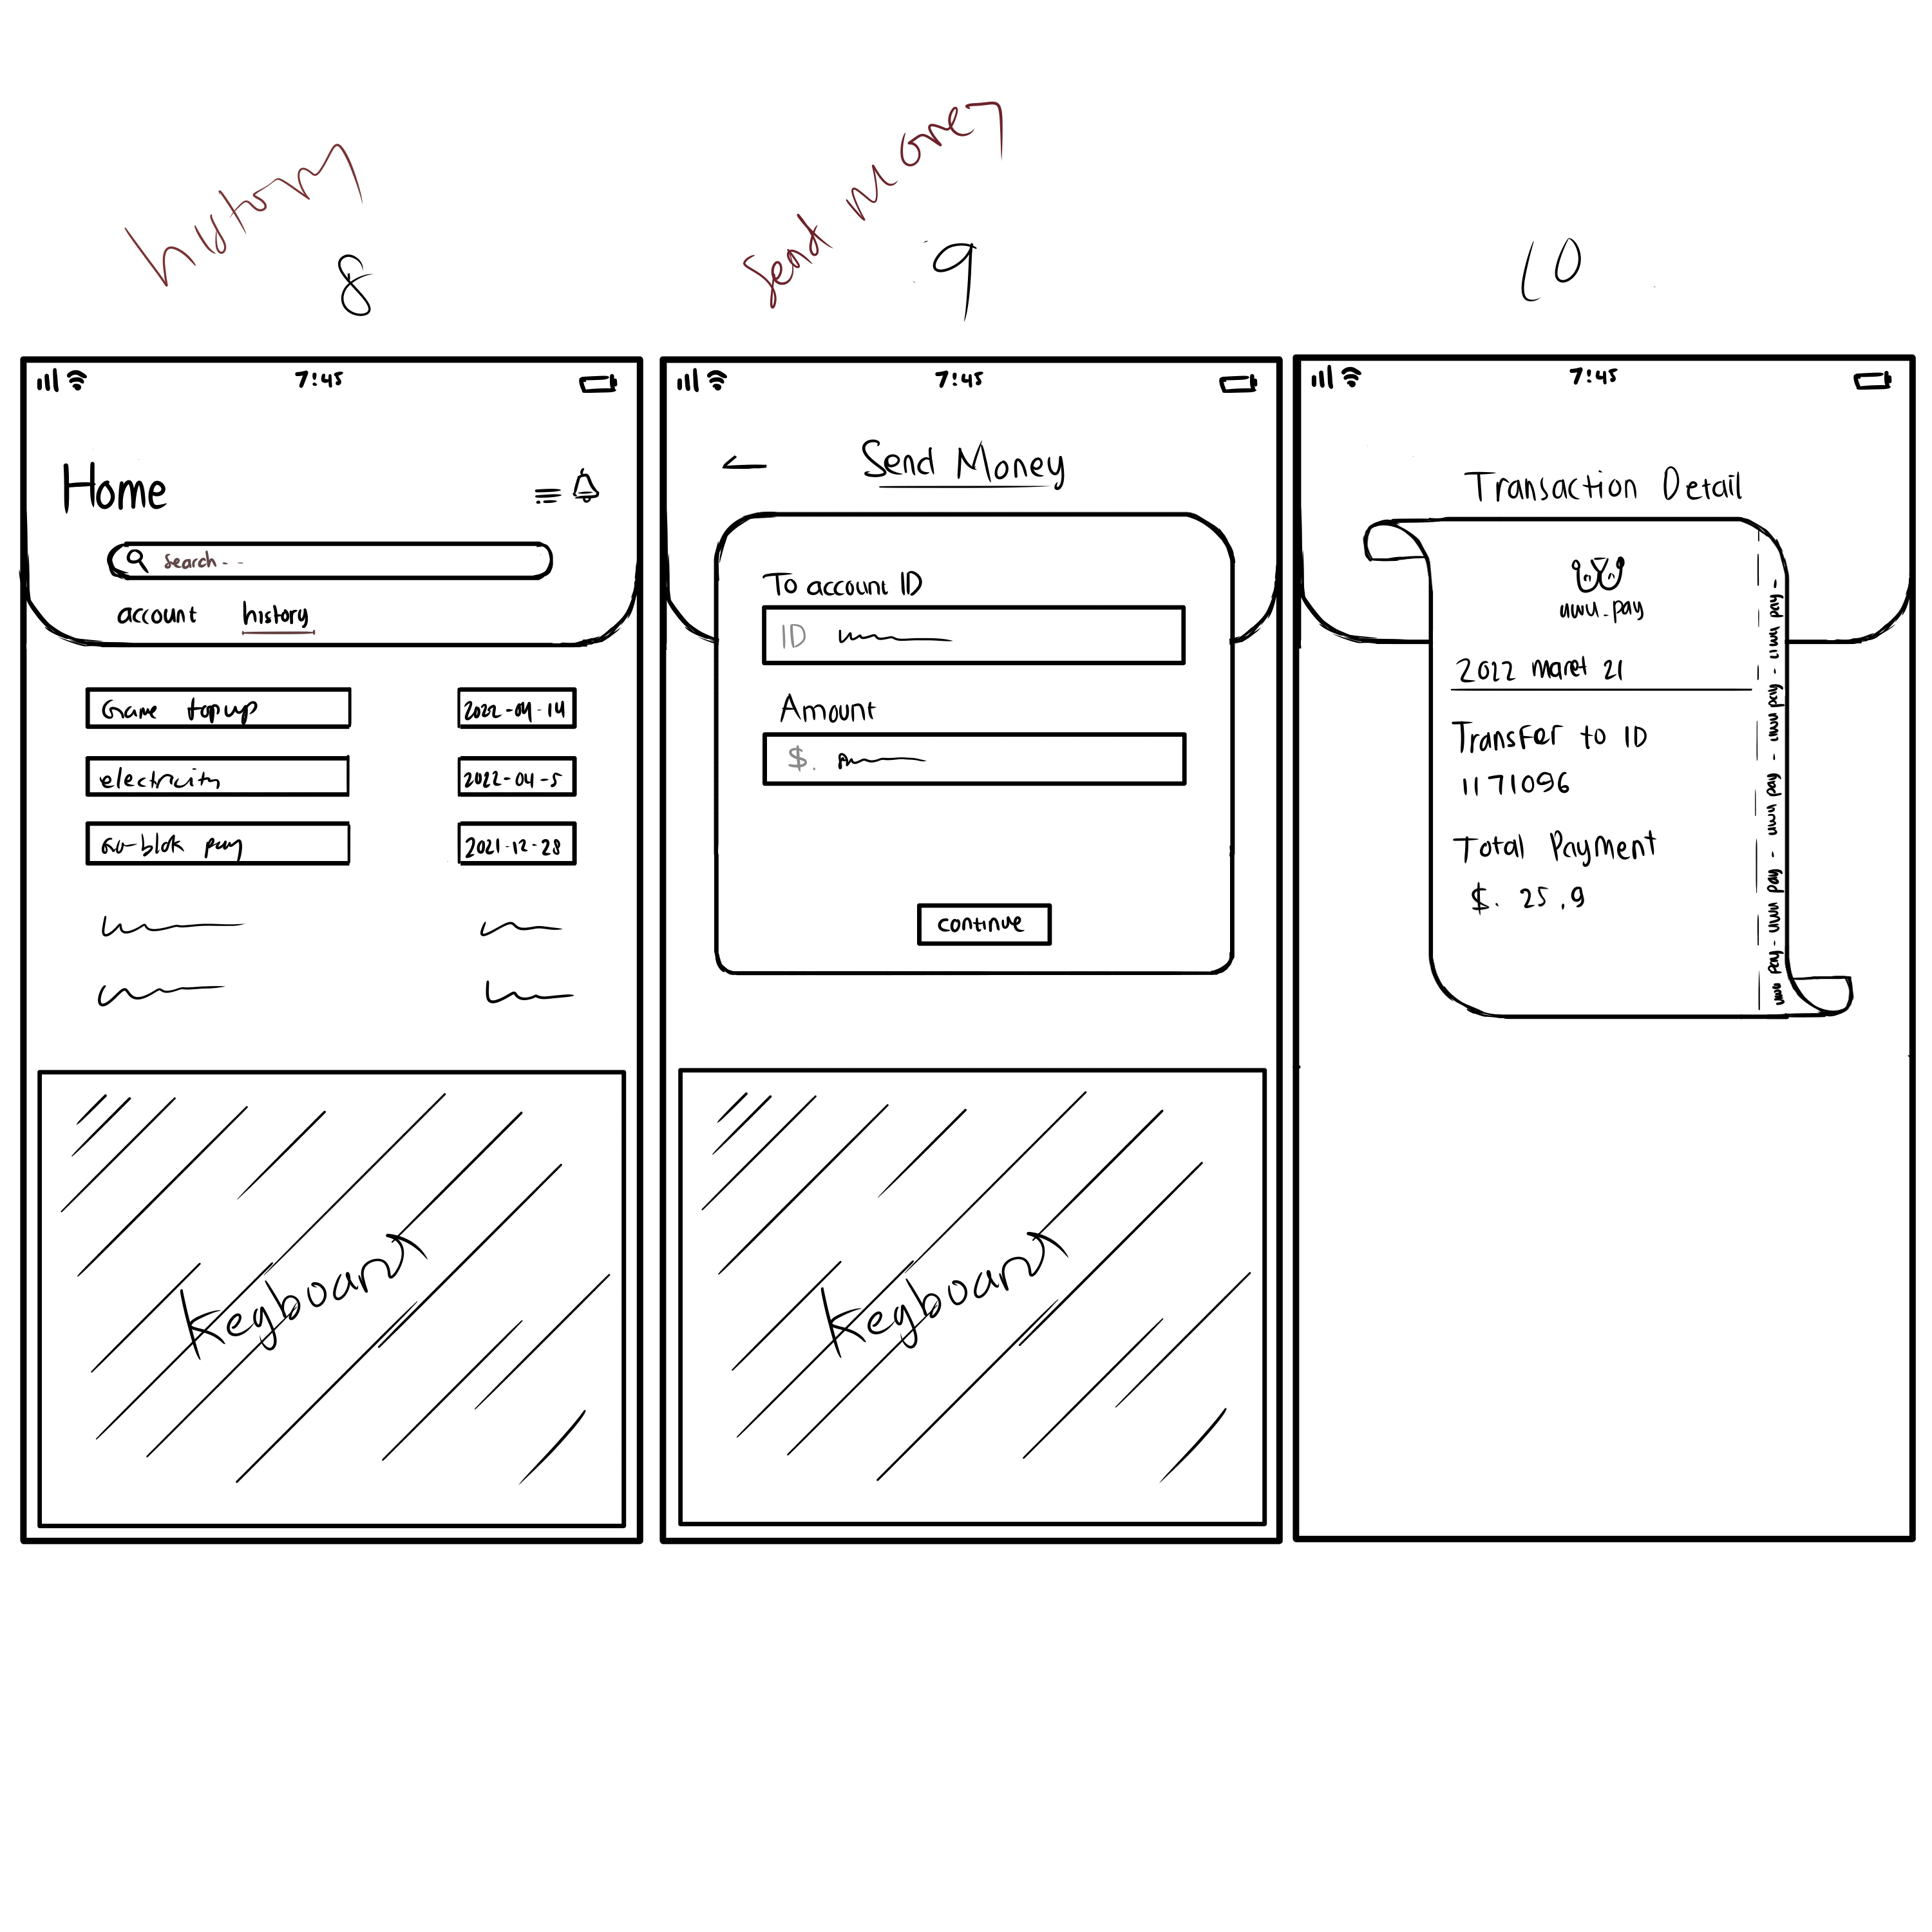 history
8
send money
9
10
7:45
Home
search--
account history
Game top up 2022-04-14
electricity 2022-04-5
Go-blok pay 2021-12-28
keyboard
7:45
Send Money
To account ID
ID
Amount
$.
continue
keyboard
7:45
Transaction Detail
uwu.pay
2022 maret 21
Transfer to ID
1171096
Total Payment
$. 25.9
uwu pay - uwu pay - uwu pay - uwu pay - uwu pay -